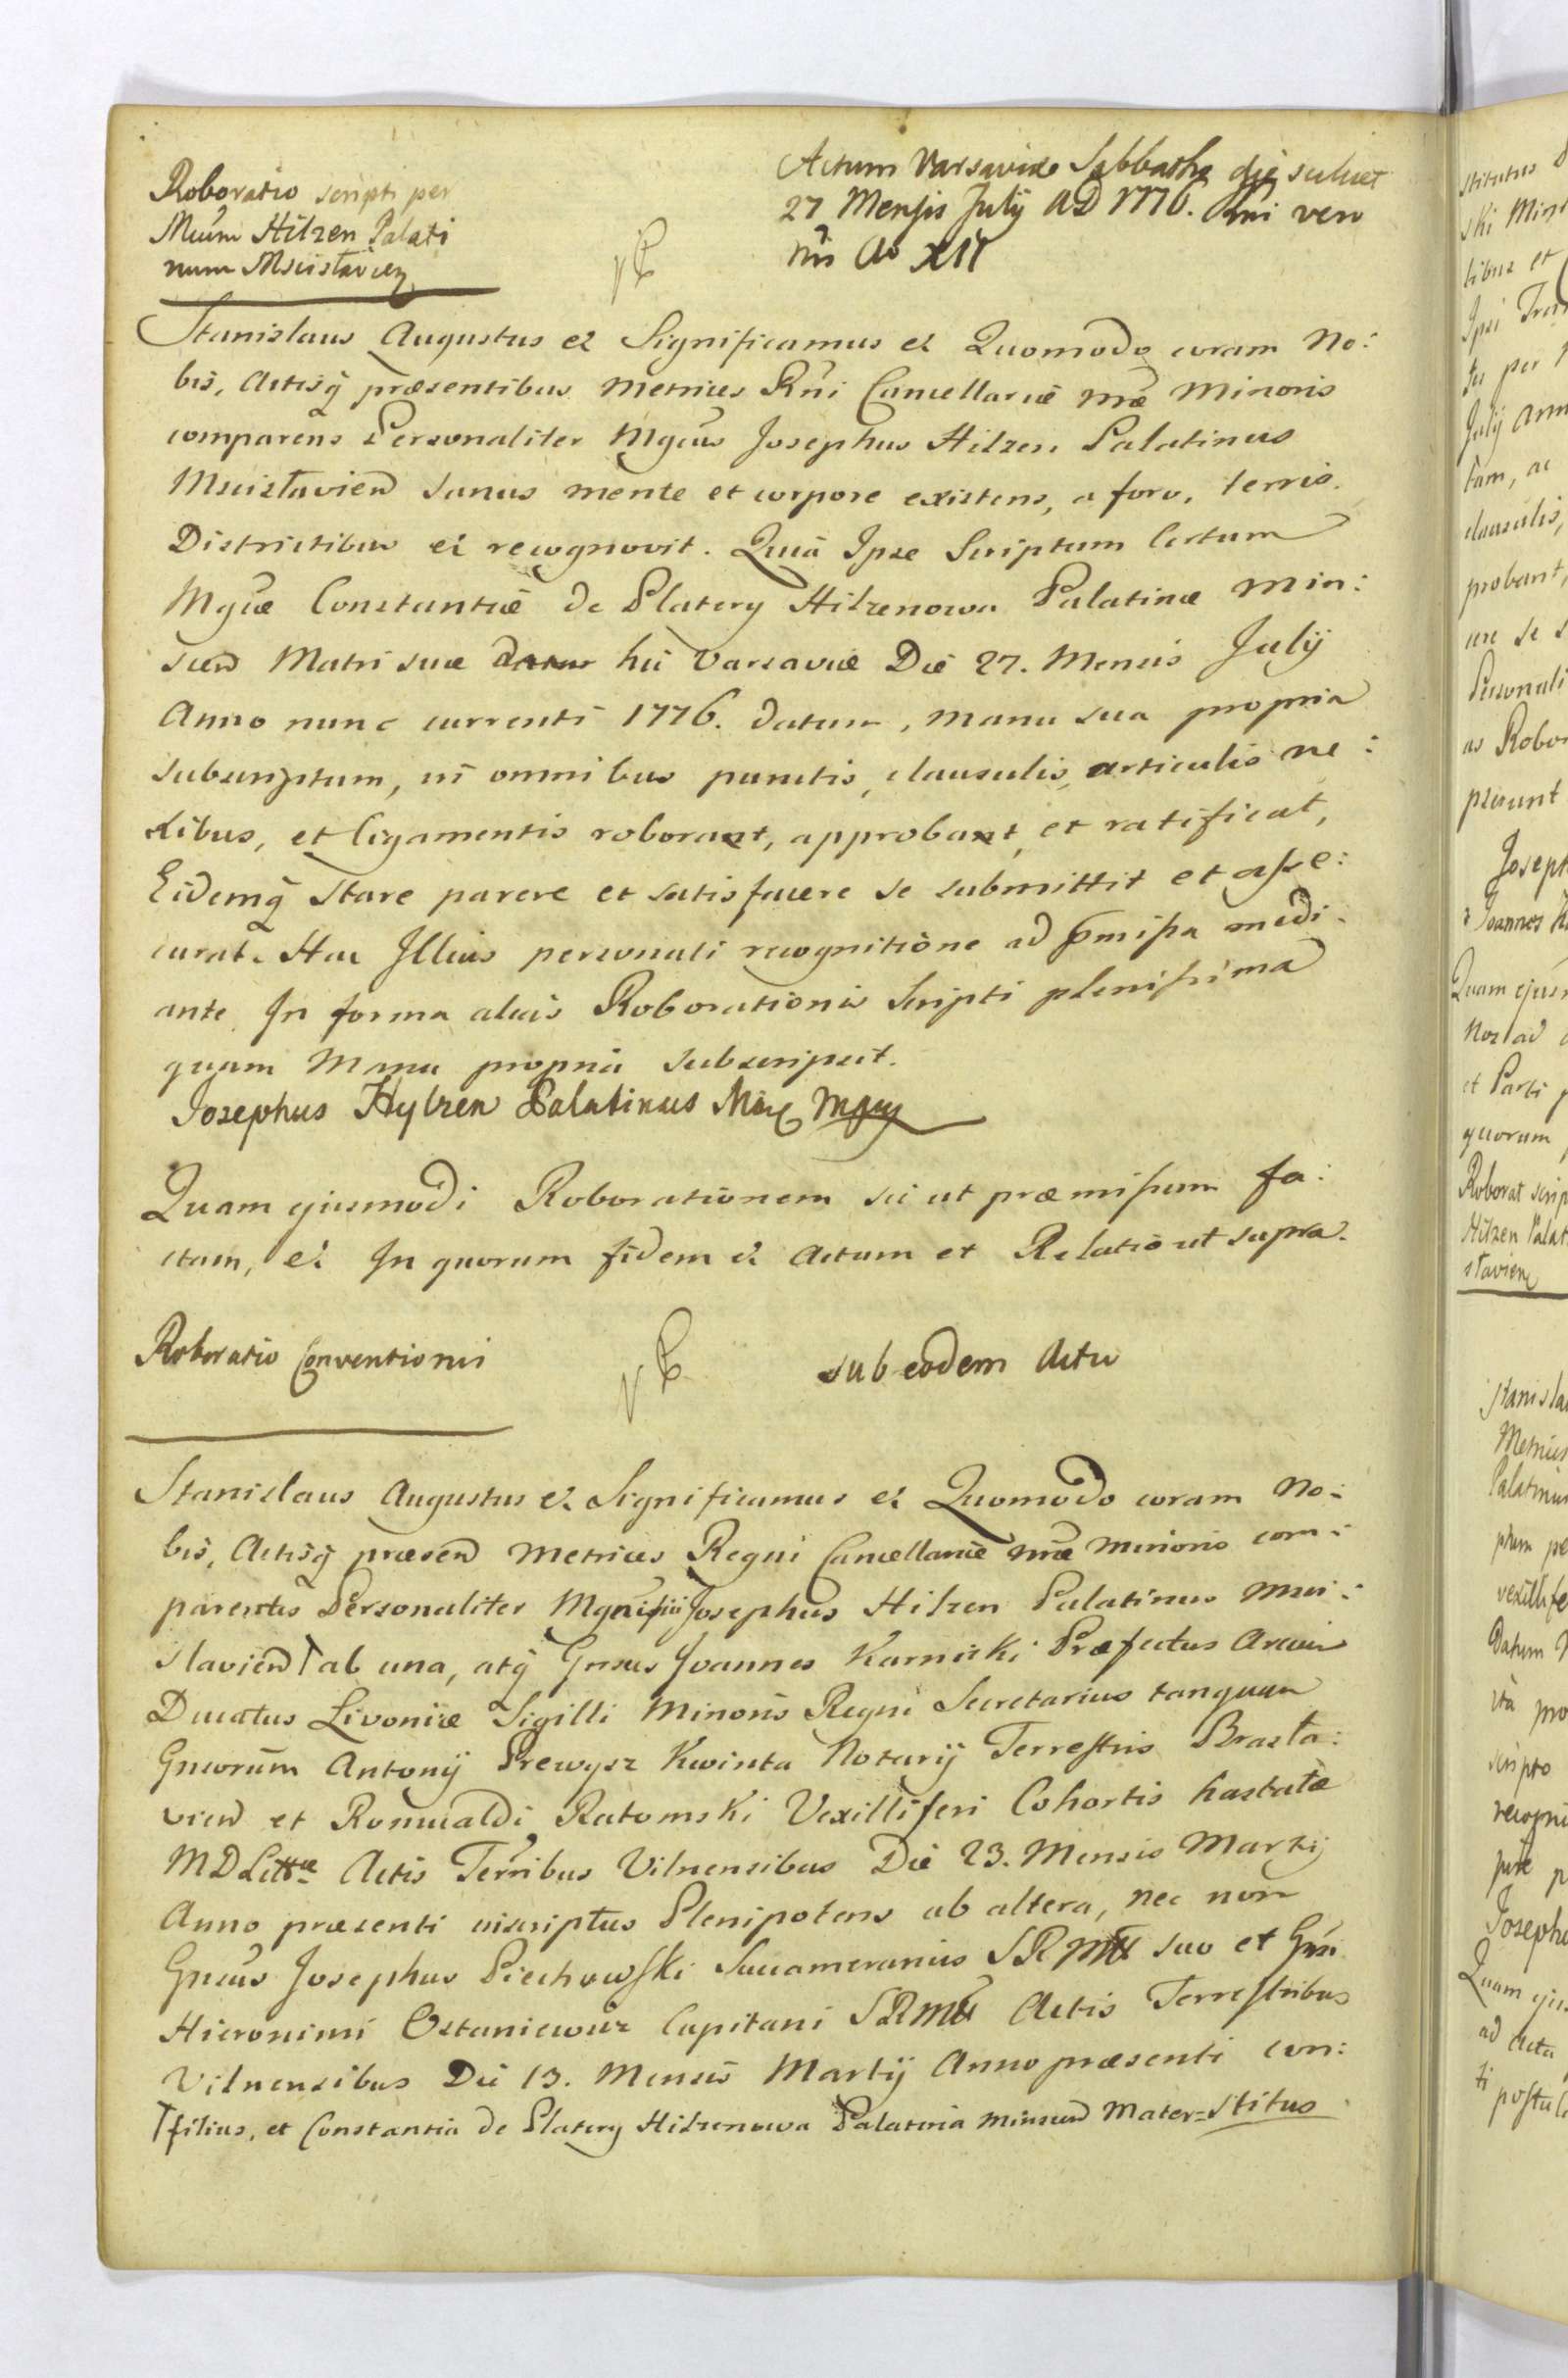 Roboratio scripti per
Mcum Hilzen Palati
num Mscislavien
Actum Varsaviæ Sabbatho die scilicet
27 Mensis July AD 1776. Rni vero
nri Ao XII
Stanislaus Augustus et Significamus et Quomodo coram No:
bis, Actisq præsentibus Metrices Rni Cancellariæ nræ Minoris
comparens Personaliter Mgcus Josephus Hilzen Palatinus
Mscislavien sanus mente et corpore existens, a foro, terris.
Districtibus et recognovit. Quia Ipse Scriptum Certum
Mgcæ Constantiæ de Platery Hilzenowa Palatinæ Min:
scen Matri suæ hic Varsaviæ Die 27. Mensis July
Anno nunc currenti 1776. datum, manu sua propria
subscriptum, in omnibus punctis, clausulis, articulis ne:
xibus, et ligamentis roborat, approbat, et ratificat,
Eidemq stare parere et satisfacere se submittit et asse:
curat. Hac Illius personali recognitione ad pmissa medi
ante. In forma alias Roborationis Scripti plenissima
quam Manu propria subscripsit.
Josephus Hylzen Palatinus Mśc mpp
Quam ejusmodi Roborationem sic ut præmissum fa:
ctam, et In quorum fidem et Actum et Relatio ut supra.
Roboratio Conventionis
sub eodem Actu
Stanislaus Augustus et Significamus et Quomodo coram No:
bis, Actisq præsen Metrices Regni Cancellariæ nræ Minoris com:
parentes Personaliter Josephus Hilzen Palatinus Msci:
slavien ab una, atq Gnsus Joannes Karnicki Præfectus Arcuum
Ducatus Livoniæ Sigilli Minoris Regni Secretarius tanquam
Gnsorum Antonij Prewysz Kwinta Notarij Terrestris Brasła:
vien et Romualdi Ratomski Vexilliferi Cohortis hastatæ
MDLittæ Actis Terribus Vilnensibus Die 23. Mensis Martij
Anno præsenti inscriptus Plenipotens ab altera, nec non
Gnsus Josephus Piechowski Succamerarius SRM suo et Gnsi
Hieronimi Ostaniewicz Capitani SRM Actis Terrestribus
Vilnensibus Die 13. Mensis Martij Anno præsenti con:
filius, et Constantia de Platery Hilzenowa Palatina Minscen Mater=stitus
stitutus
tibus et
Ipsi
per
July Ann
tam, ac
clausulis,
probant,
Personali
as Robor
pserunt
Joseph
Joannes K
Quam ejus
Nos ad
et Parti p
quorum
Roborat scrip
Hilzen Palat
slavien
Stanisla
Metrices
Palatinus
vexillife
Datum
ita pro
scripto
recogni
Josephu
Quam ejus
ad Acta
ti postula